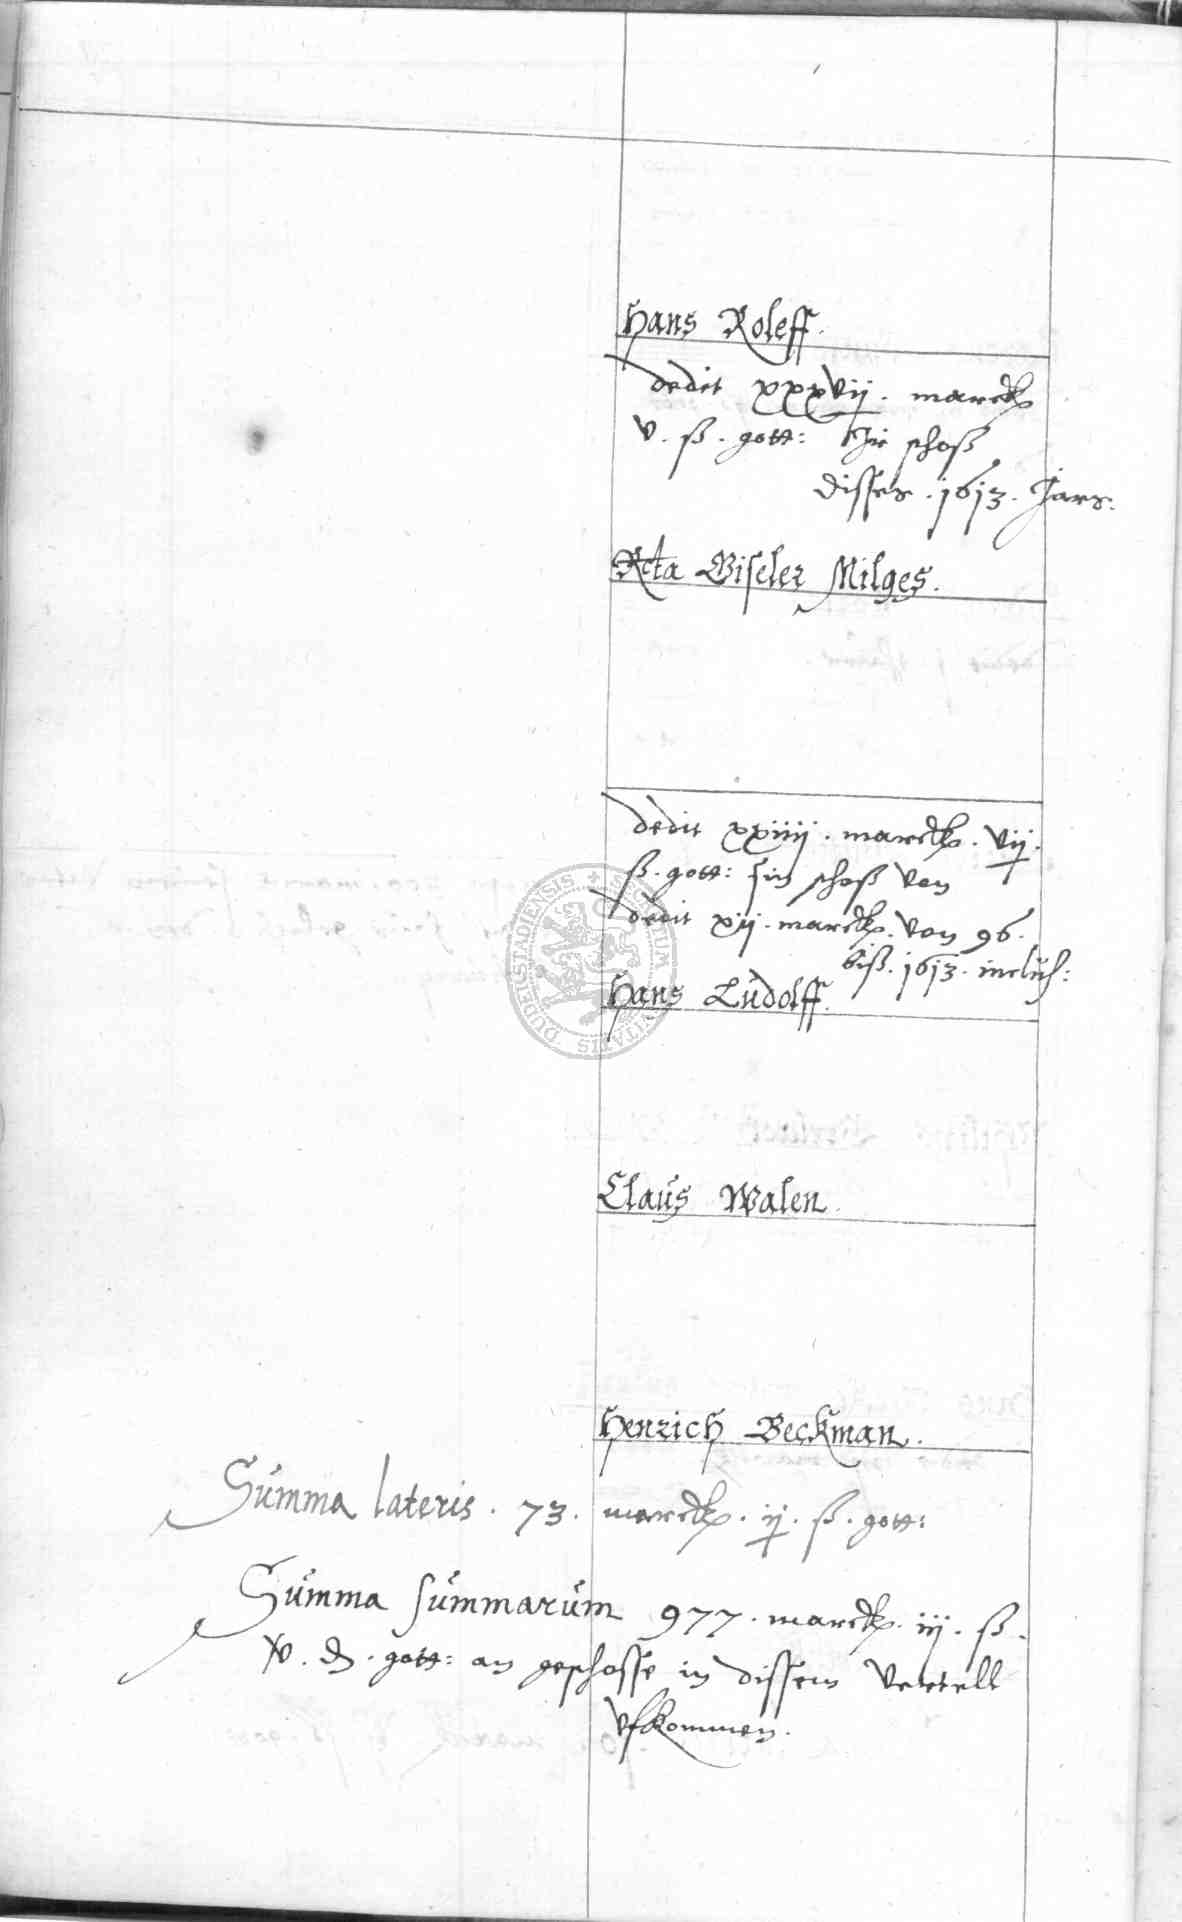 Hans Roleff.
dedit xxxvij. marck
v. ß. gott: Ihr schoß
disses. 1613. Jars.
Rcta Giseler Milges.
dedit xxiiij. marck. vij.
ß. gott: sin schoß von
dedit xij. marck. von 96.
biß. 1613. inclus:
Hans Ludolff.
Claus Walen.
Henrich Beckman.
Summa lateris. 73. marck. ij. ß. gott:
Summa summarum 977. marck. iij. ß.
v. d. gott: an geschosse in dissem vertell
vfkommen.
SECRETUM CIVITATIS DUDERSTADIENSIS